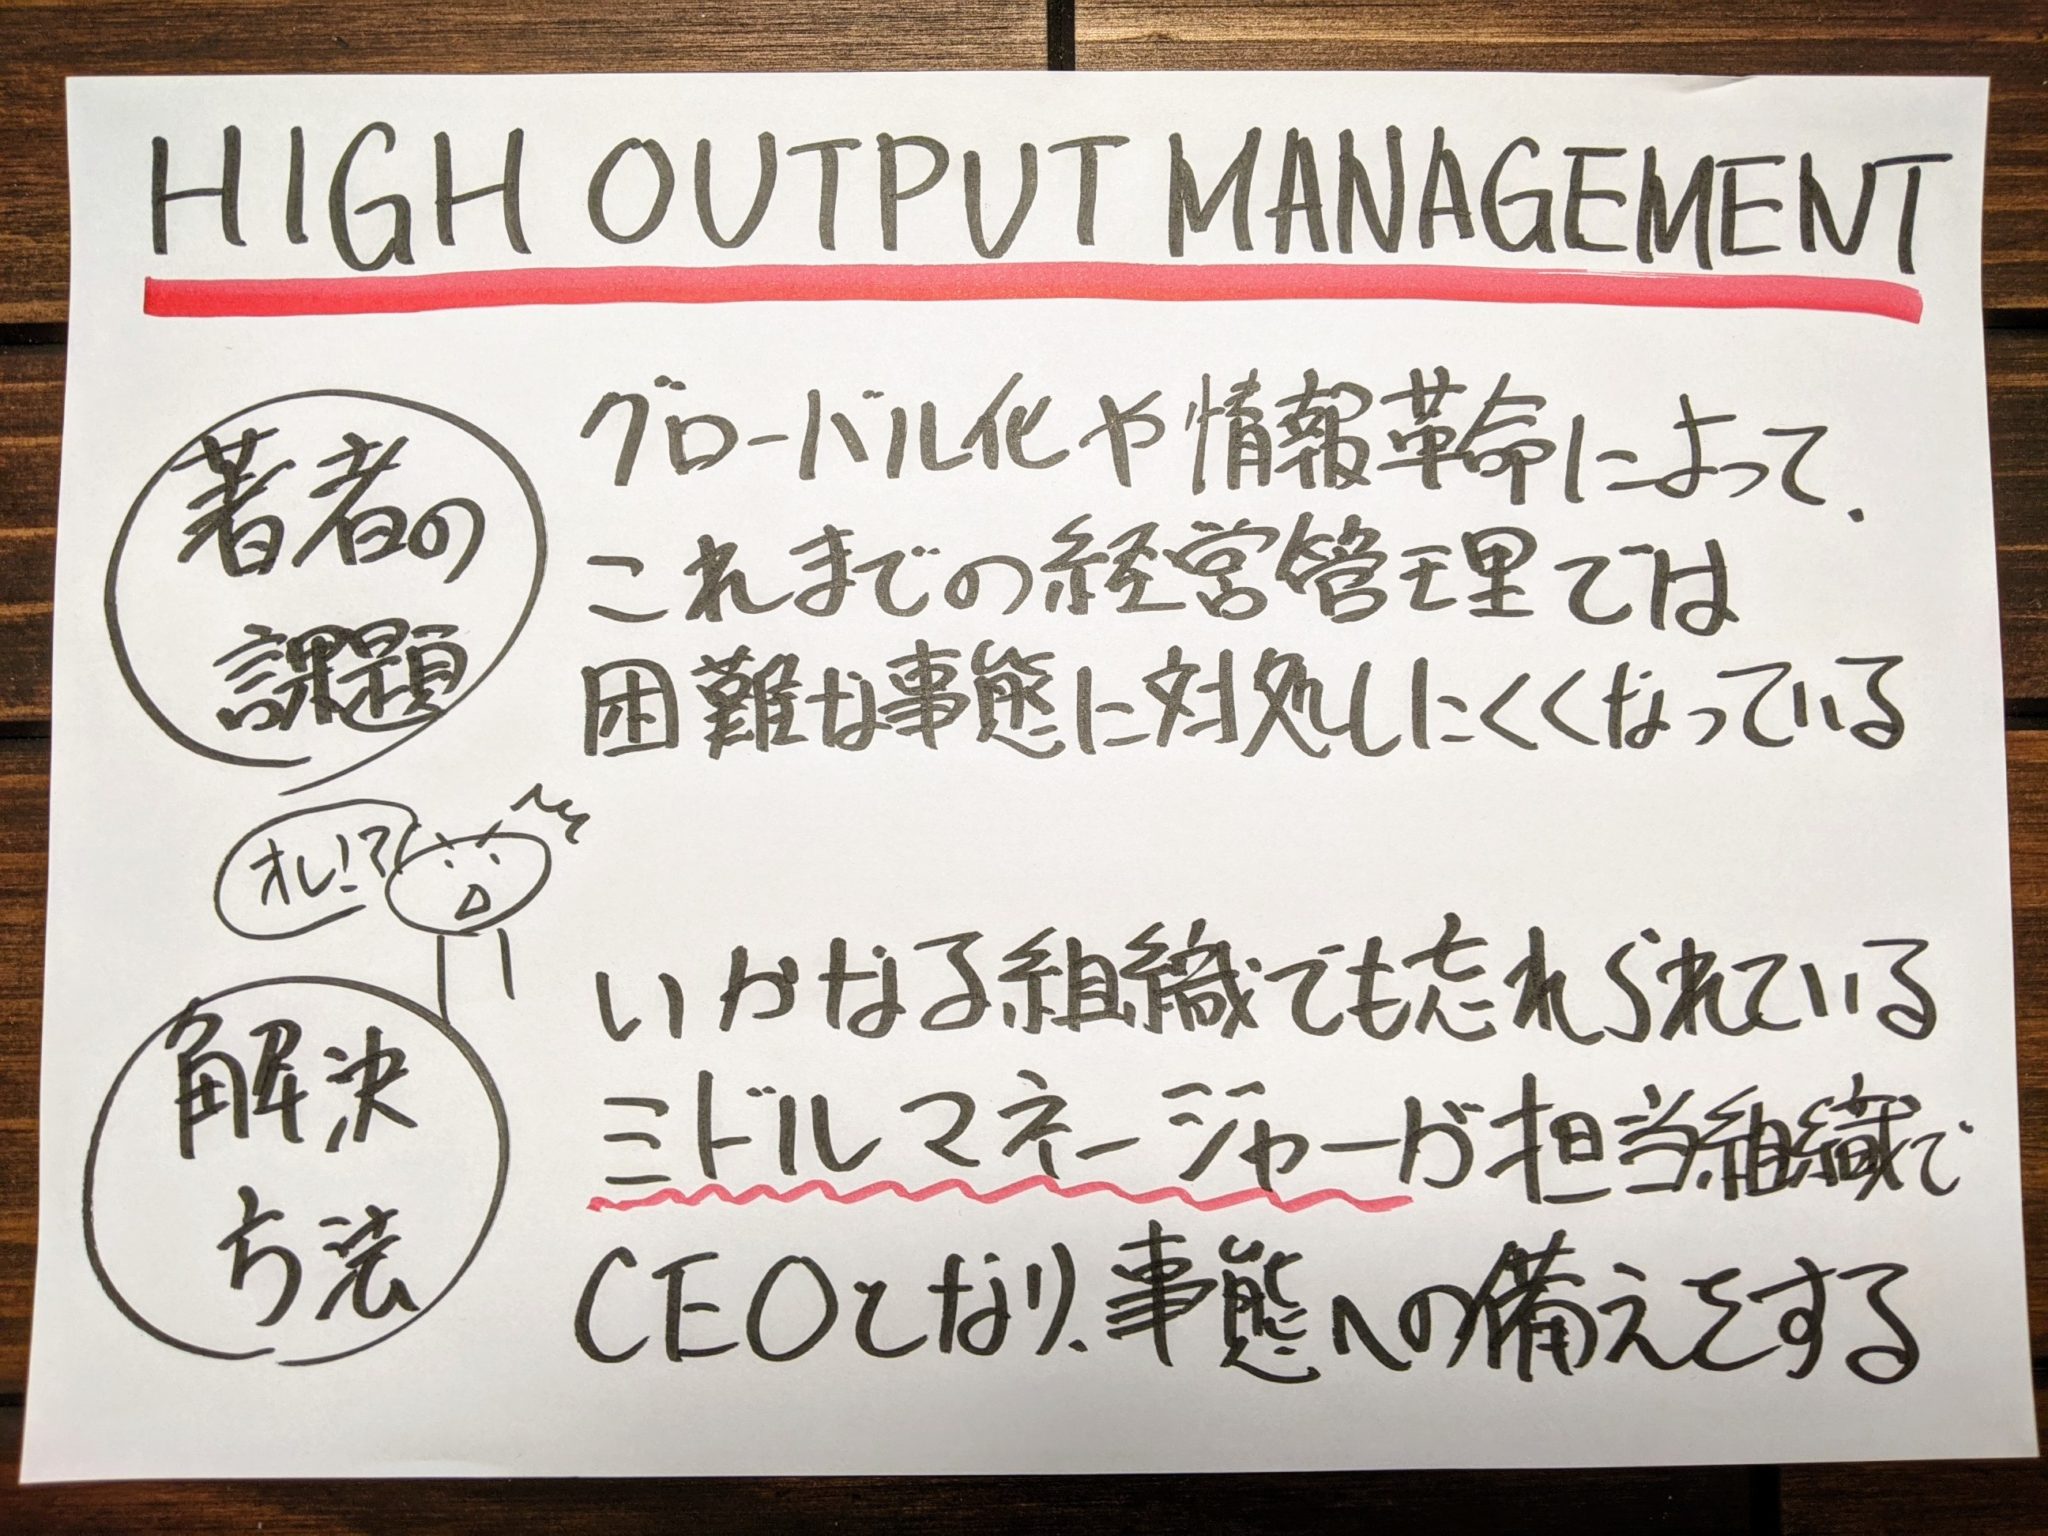 HIGH OUTPUT MANAGEMENT
著者の
課題
グローバル化や情報革命によって、
これまでの経営管理では
困難な事態に対処しにくくなっている
オレ!?
解決
方法
いかなる組織でも忘れられている
ミドルマネージャーが担当組織で
CEOとなり、事態への備えをする